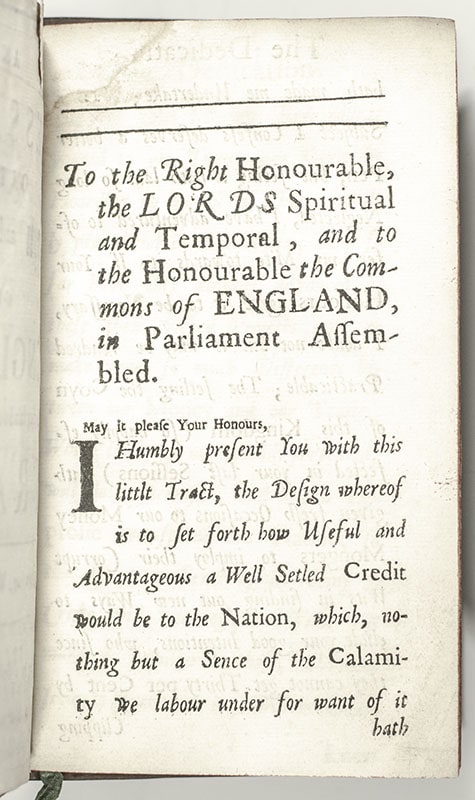 To the Right Honourable,
the LORDS Spiritual
and Temporal, and to
the Honourable the Com-
mons of ENGLAND,
in Parliament Aſſem-
bled.
May it pleaſe Your Honours,
I Humbly preſent You with this
littlt Tract, the Deſign whereof
is to ſet forth how Uſeful and
Advantageous a Well Setled Credit
would be to the Nation, which, no-
thing but a Sence of the Calami-
ty we labour under for want of it
hath